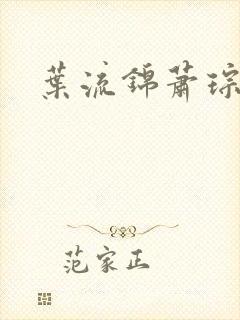 葉流錦蕭琮
范家正